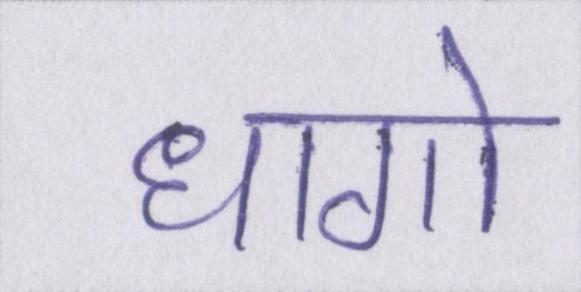 धागो